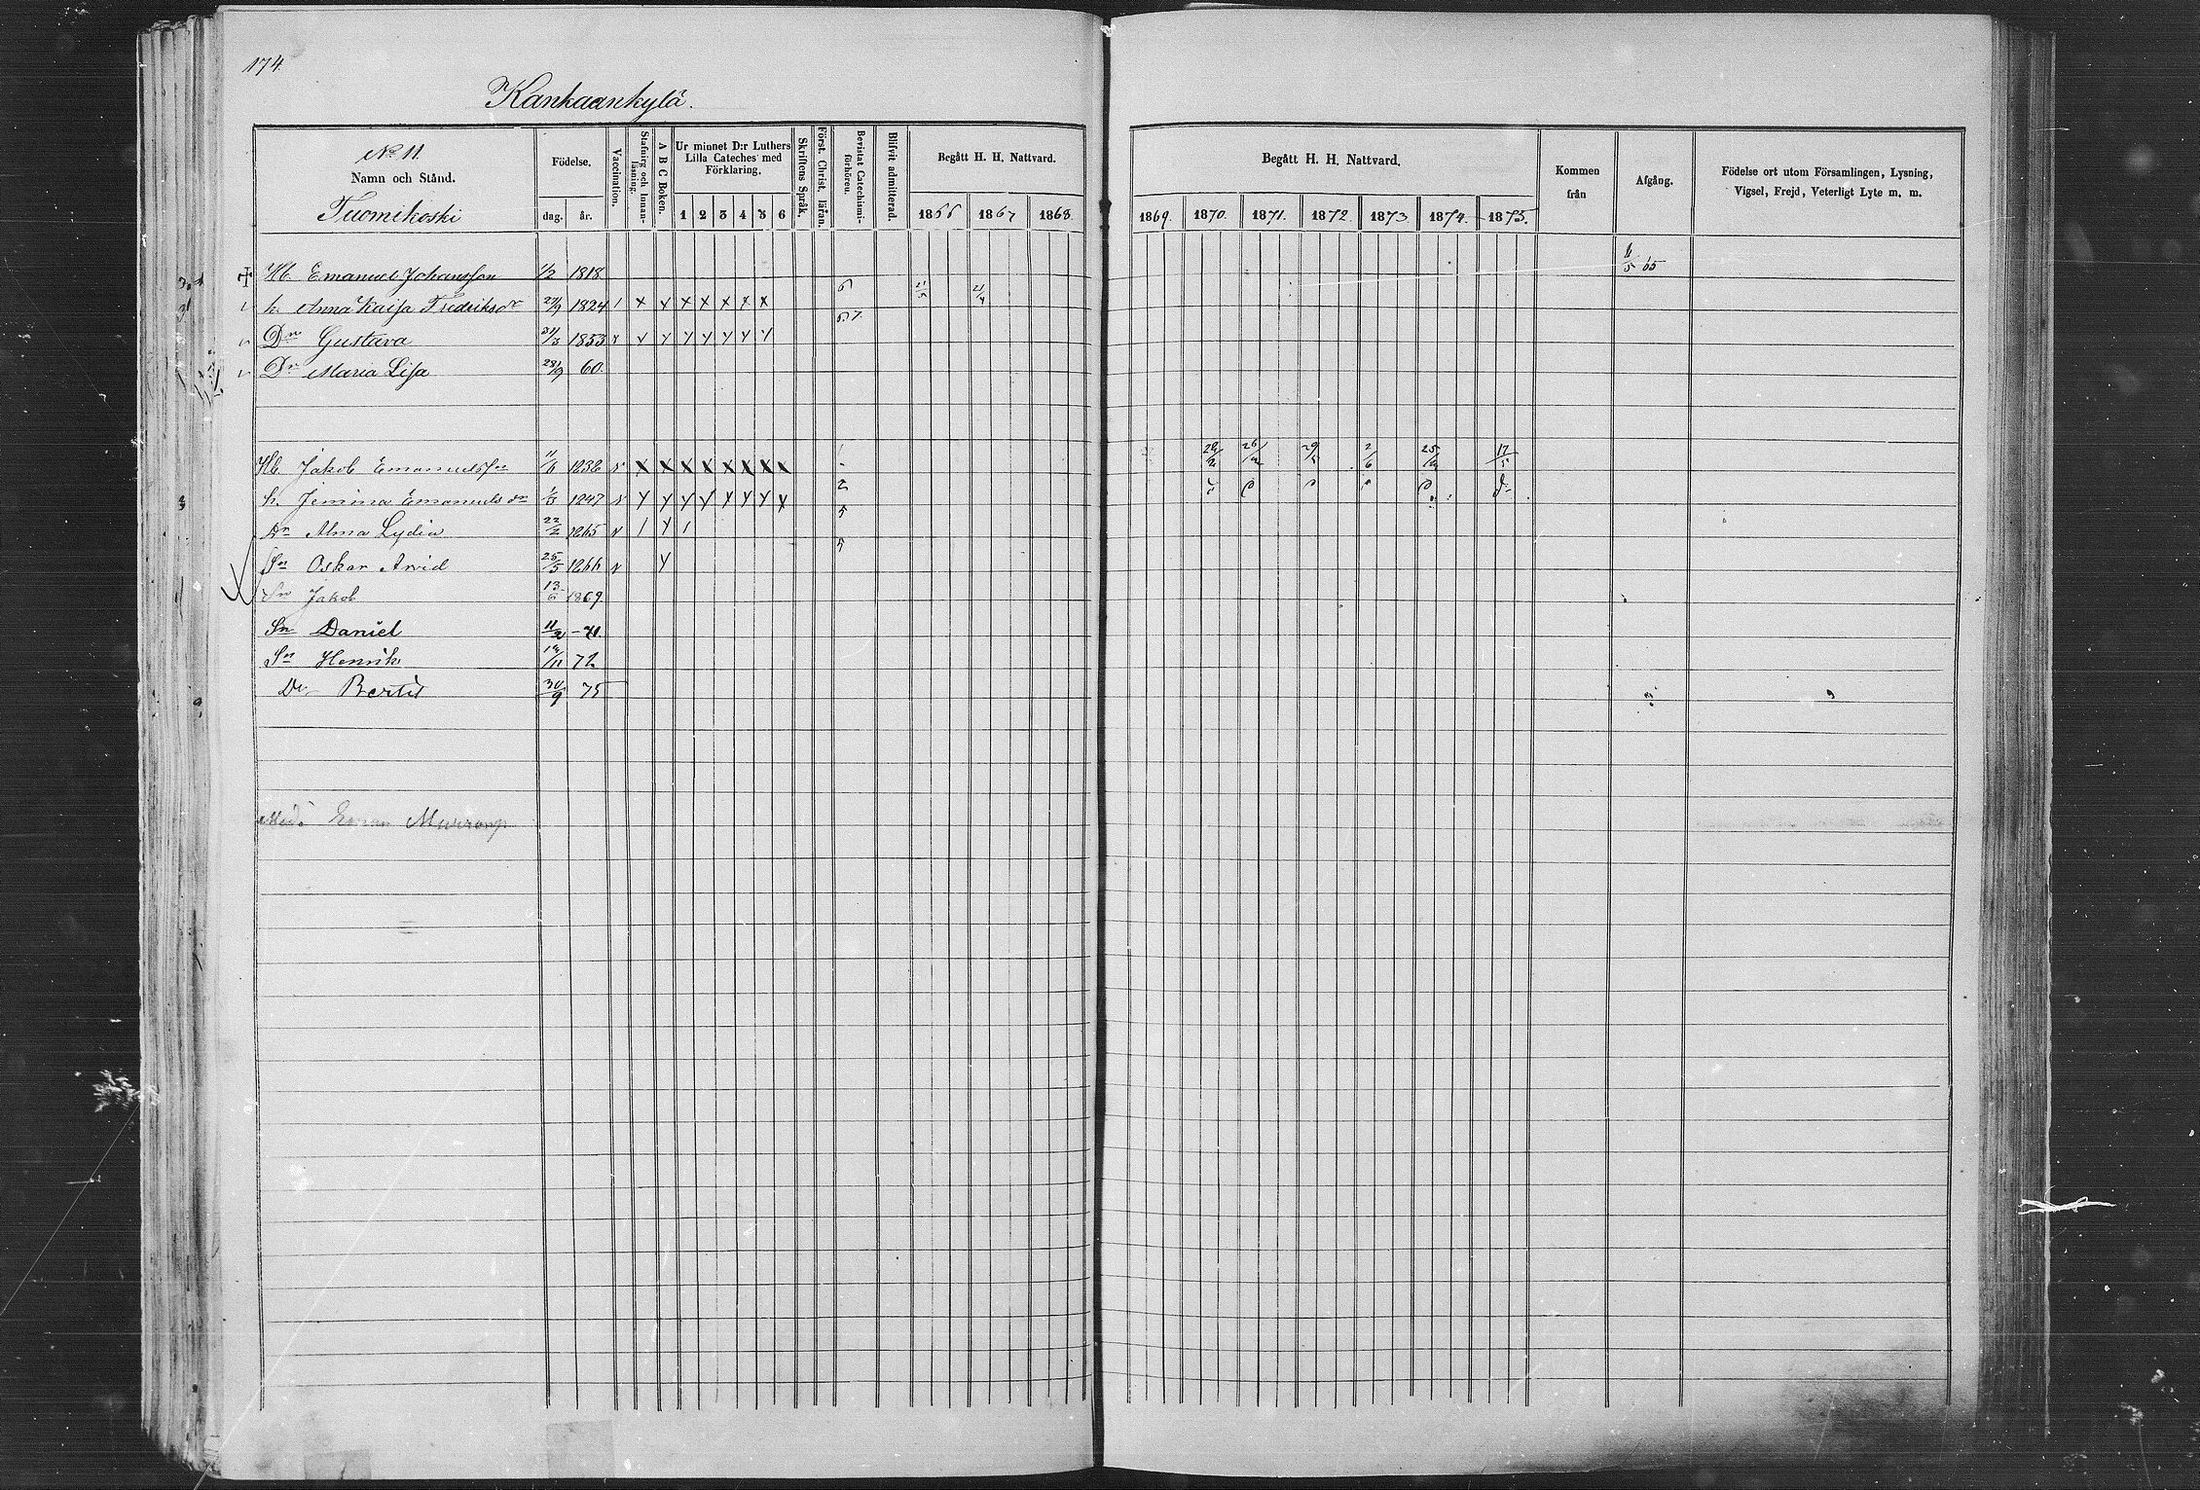 174
Kankaankylä.
No 11.
Namn och Stånd.
Tuomikoski
Födelse.
dag. år.
Vaccination.
Stafning och Innan-
läsning.
A B C Boken.
Ur minnet D:r Luthers
Lilla Cateches med
Förklaring.
1 2 3 4 5 6
Skriftens Språk.
Förest. Christ. läran.
Bevistat Catechismi-
förhören.
Blifvit admitterad.
Begått H. H. Nattvard.
1866 1867 1868
Begått H. H. Nattvard.
1869. 1870. 1871. 1872. 1873. 1874. 1875.
Kommen
från
Afgång.
Födelse ort utom Församlingen, Lysning,
Vigsel, Frejd, Veterligt Lyte m. m.
Hb. Emanuel Johansson 1/2 1818. 6/5 65
h. Anna Kaisa Fredriksdr 1824 1 x x x x x x x 6
Dr Gustava 1853 y y y y y y y y 6.7.
Dr Maria Lisa 28/9 60.
Hb. Jakob Emanuelsson v x x x x x x x x 26/2 2/6 17/5
h. Jemina Emanuelsdr 1/3 1847 v y y y y y y y x 2
Dr Alma Lydia 22/2 1865 v 1 y 1 5
Sn Oskar Arvid 25/5 1866 v y 5
Sn Jakob 13/6 1869.
Sn Daniel 11/2 -71.
Sn Henrik 72
Dr 30/9 75